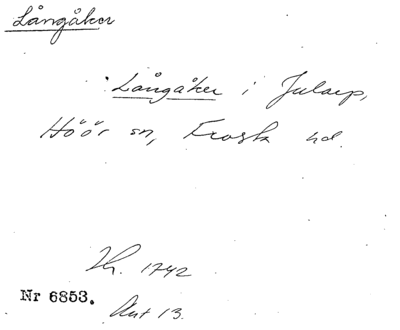 Långåker
Långåker i Jularp,
Höör sn, Frosta hd.
Th. 1742
Nr 6853.
Ant 13.